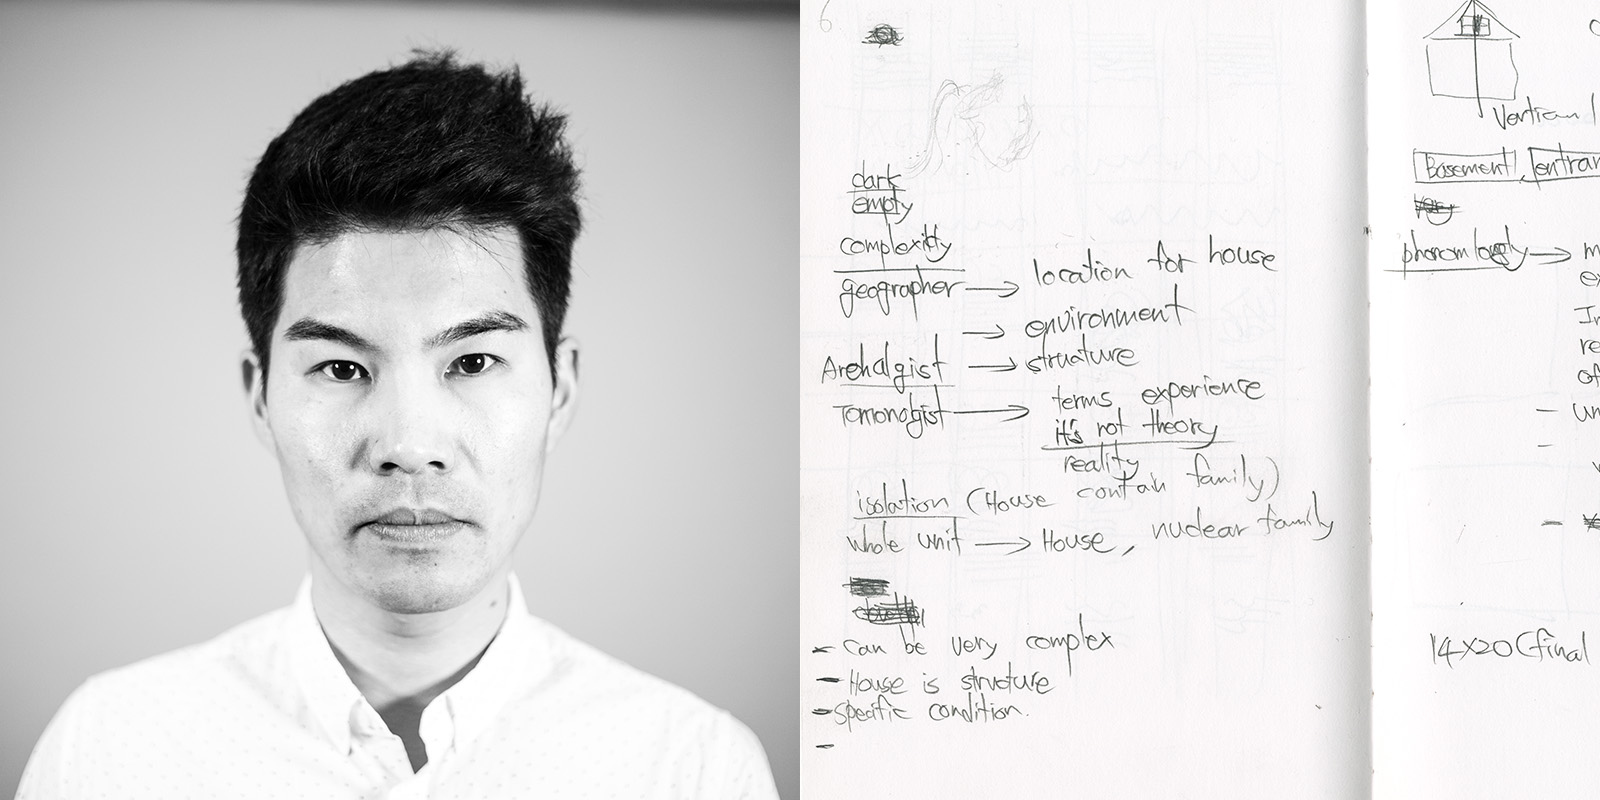 6
dark
empty
complexity
geographer → location for house
→ environment
Archalgist → struature
Tomonolgist → terms experience
it's not theory
reality
isolation (House contain family)
whole unit → House, nuclear family
- Can be very complex
- House is structure
- specific condition.
-
Basement, entran
→ m
ex
In
re
of
- un
-
14X20 (final